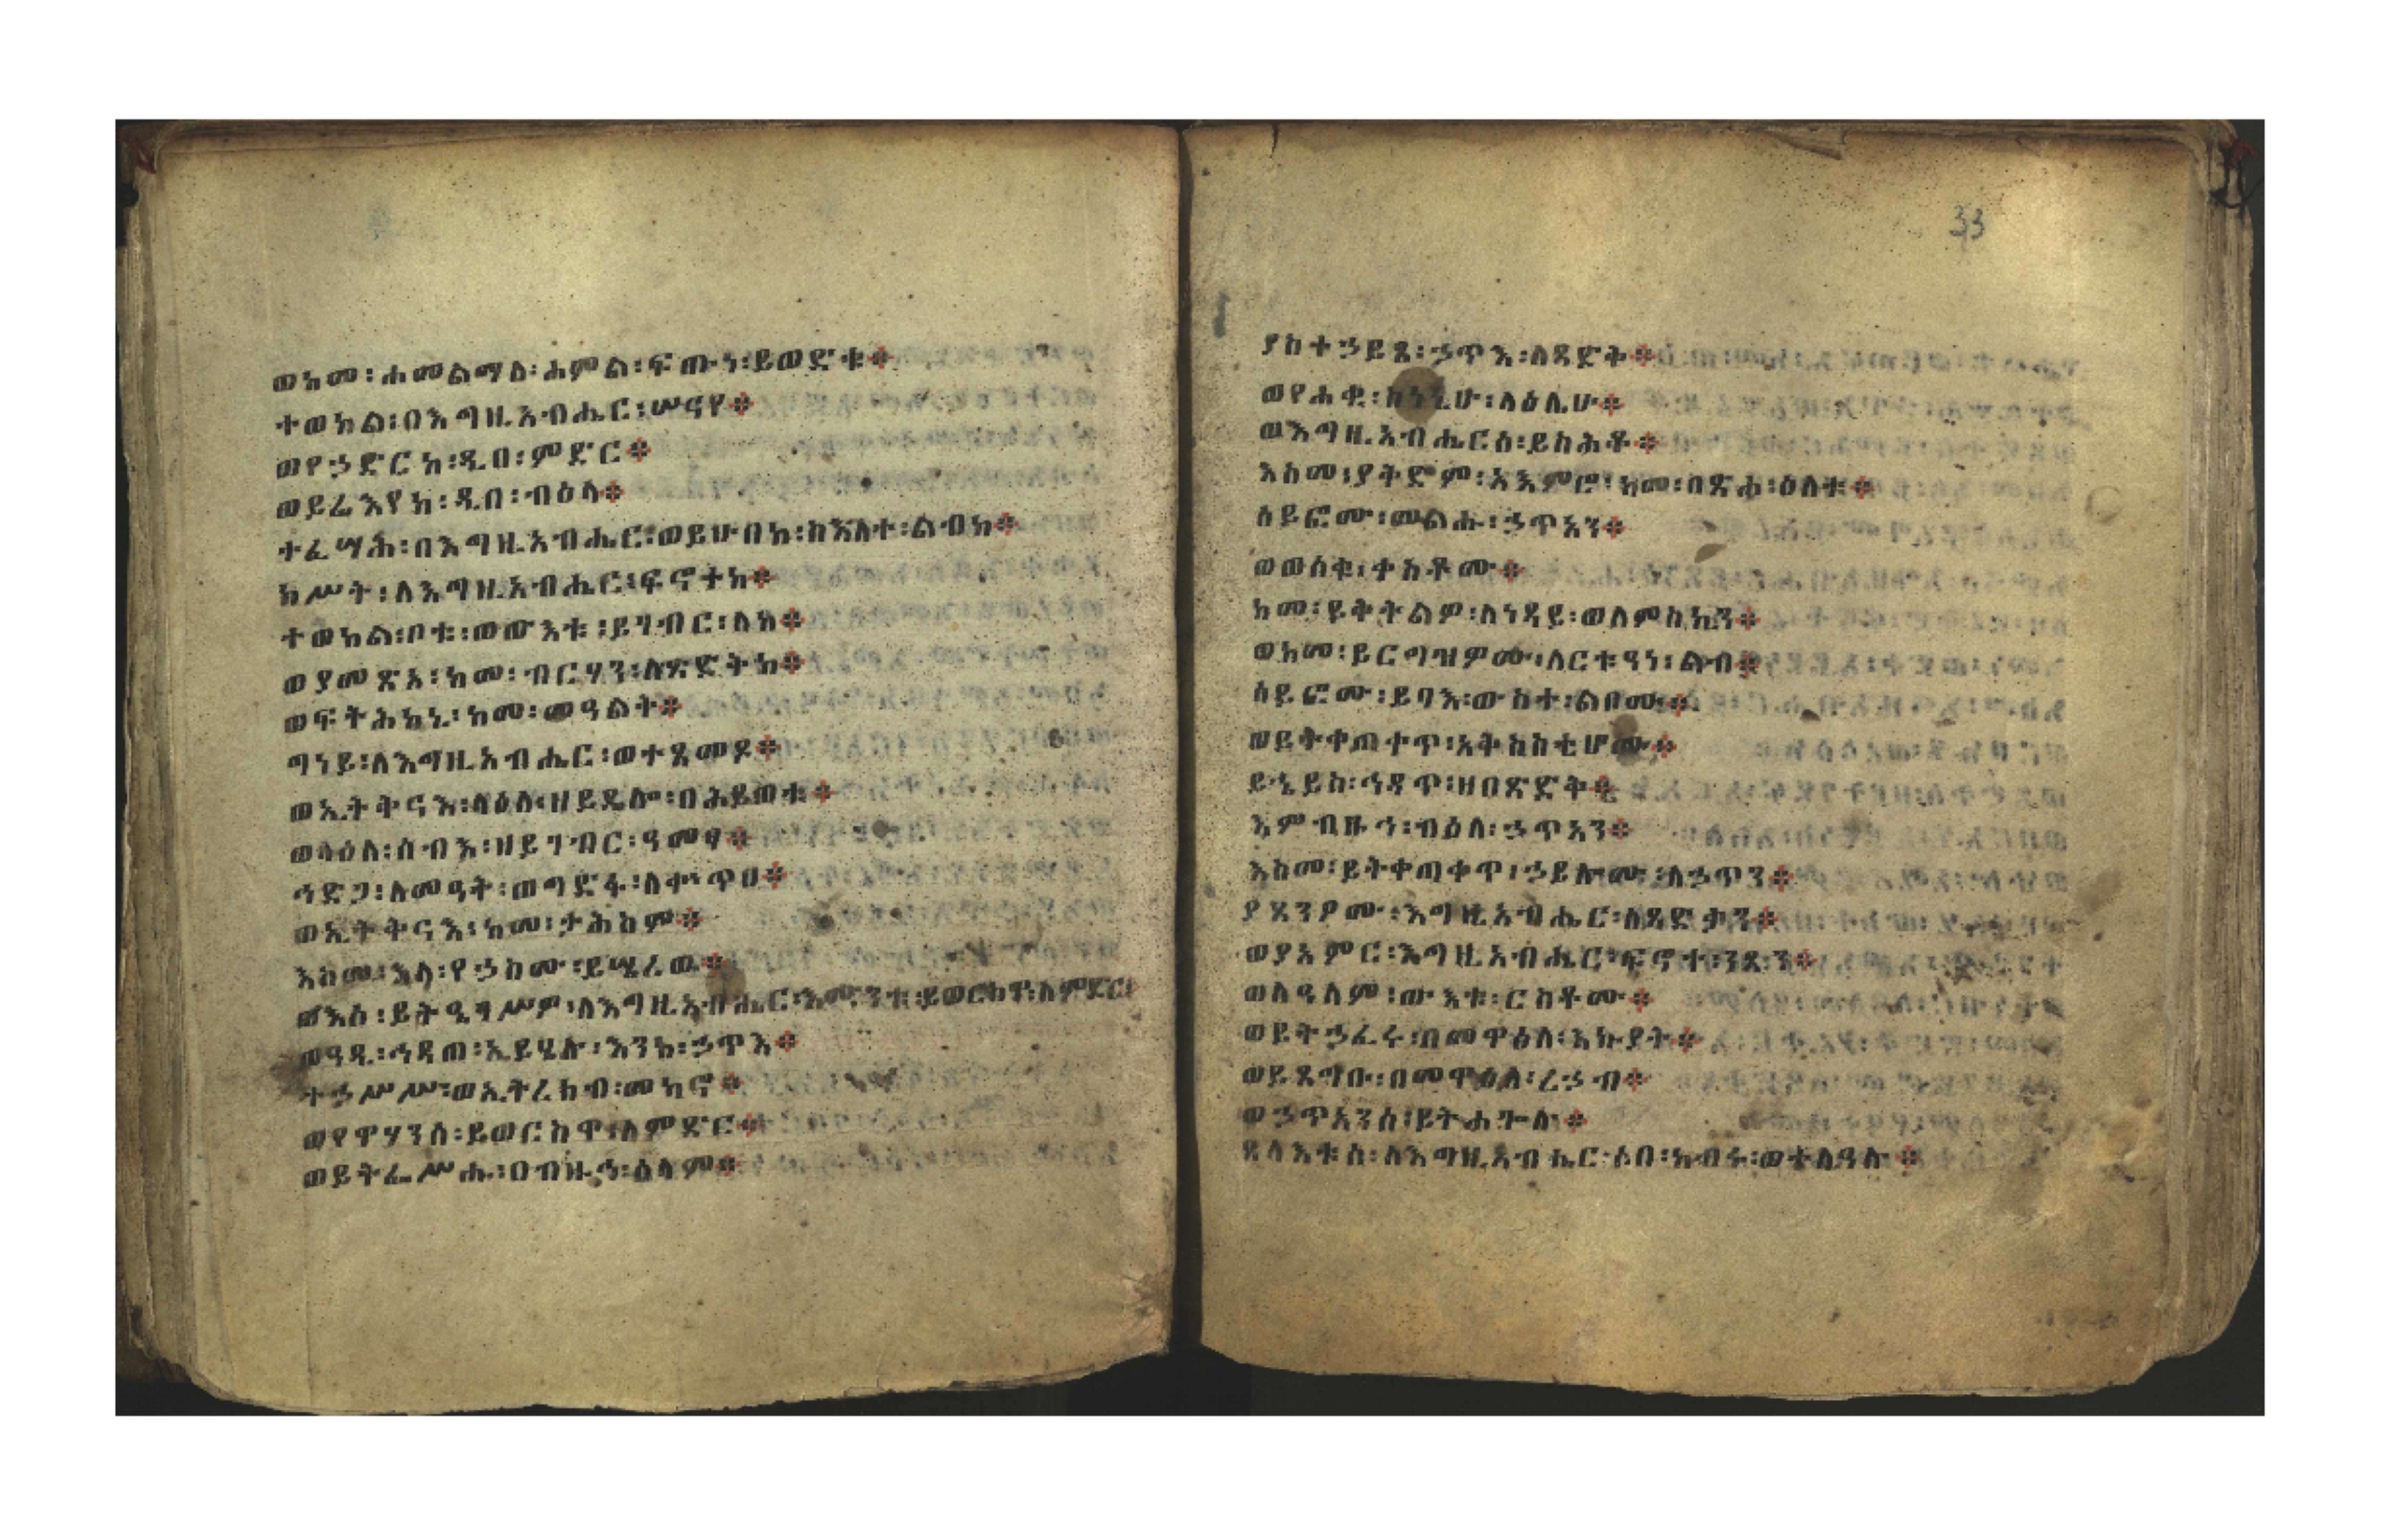 ወከመ፡ሐመልማለ፡ሐምል፡ፍጡነ፡ይወድቁ።
ተወከል፡በእግዚአብሔር፡ሠናየ።
ወየኃድርከ፡ዲበ፡ምድር።
ወይሬእየከ፡ዲበ፡ብዕላ።
ተፈሣሕ፡በእግዚአብሔር፡ወይሁበከ፡ስእለተ፡ልብከ።
ክሥት፡ለእግዚአብሔር፡ፍኖተከ።
ተወከል፡ቦቱ፡ወውእቱ፡ይገብር፡ለከ።
ወያመጽእ፡ከመ፡ብርሃን፡ለጽድቅከ።
ወፍትሕከኒ፡ከመ፡መዓልት።
ግነይ፡ለእግዚአብሔር፡ወተፀመዶ።
ወኢትቅናእ፡ላዕለ፡ዘይዴሎ፡በሕይወቱ።
ወላዕለ፡ሰብእ፡ዘይገብር፡ዓመፃ።
ኅድጋ፡ለመዓት፡ወግድፋ፡ለቍጥዐ።
ወኢትቅናእ፡ከመ፡ታሕስም።
እስመ፡እለ፡የኃስሙ፡ይሤረዉ።
ወእለ፡ይትዔገሥዎ፡ለእግዚአብሔር፡እሙንቱ፡ይወርስዋ፡ለምድር፡
ወዓዲ፡ኅዳጠ፡ኢይሄሉ፡እንከ፡ኃጥእ።
ተኃሥሥ፡ወኢትረክብ፡መካኖ።
ወየዋሃንሰ፡ይወርስዋ፡ለምድር።
ወይትፌሥሑ፡በብዙኅ፡ሰላም።
33
ያስተኃይጾ፡ኃጥእ፡ለጻድቅ።
ወየሐቂ፡ስነኒሁ፡ላዕሌሁ።
ወእግዚአብሔርሰ፡ይስሕቆ።
እስመ፡ያቅድም፡አእምሮ፡ከመ፡በጽሐ፡ዕለቱ።
ሰይፎሙ፡መልሑ፡ኃጥአን።
ወወሰቁ፡ቀስቶሙ።
ከመ፡ይቅትልዎ፡ለነዳይ፡ወለምስኪን።
ወከመ፡ይርግዝዎሙ፡ለርቱዓነ፡ልብ።
ሰይፎሙ፡ይባእ፡ውስተ፡ልቦሙ።
ወይትቀጠቀጥ፡አቅስስቲሆሙ።
ይኄይስ፡ኅዳጥ፡ዘበጽድቅ።
እምብዙኅ፡ብዕለ፡ኃጥአን።
እስመ፡ይትቀጠቀጥ፡ኃይሎሙ፡ለኃጥን።
ያጸንዖሙ፡እግዚአብሔር፡ለጻድቃን።
ወያአምር፡እግዚአብሔር፡ፍኖተ፡ንጹን።
ወለዓለም፡ውእቱ፡ርስቶሙ።
ወይትኃፈሩ፡በመዋዕለ፡እኩያት።
ወይጸግቡ፡በመዋዕለ፡ረኃብ።
ወኃጥአንሰ፡ይትሐጐሉ።
ጸላእቱሰ፡ለእግዚአብሔር፡ሶበ፡ከብሩ፡ወተለዓሉ።